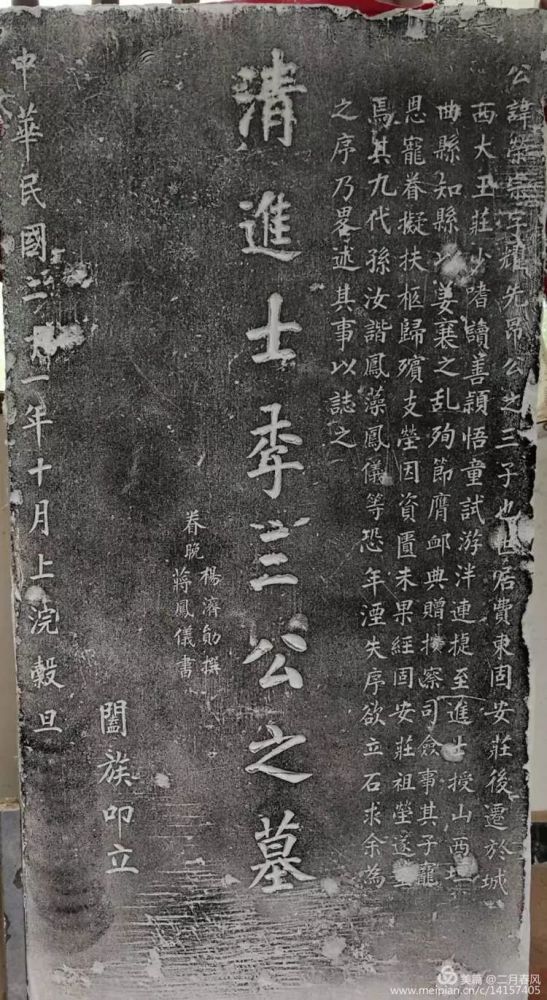 公諱榮宗字耀先昂公之三子也世居費東固安莊後遷於城
西大丑莊少嗜讀善頴悟童試游泮連捷至進士授山西垣
曲縣知縣以姜襄之乱殉節膺卹典贈按察司僉事其子寵
恩寵眷擬扶柩歸殯支塋因資匱未果經固安莊祖塋遂
焉其九代孫汝諧鳳藻鳳儀等恐年湮失序欲立石求余為
之序乃畧述其事以誌之
清進士季三公之墓
眷晚
楊濟勛撰
蔣鳳儀書
闔族叩立
中華民國二十一年十月上浣穀旦
美篇 @二月春风
www.meipian.cn/c/14157405